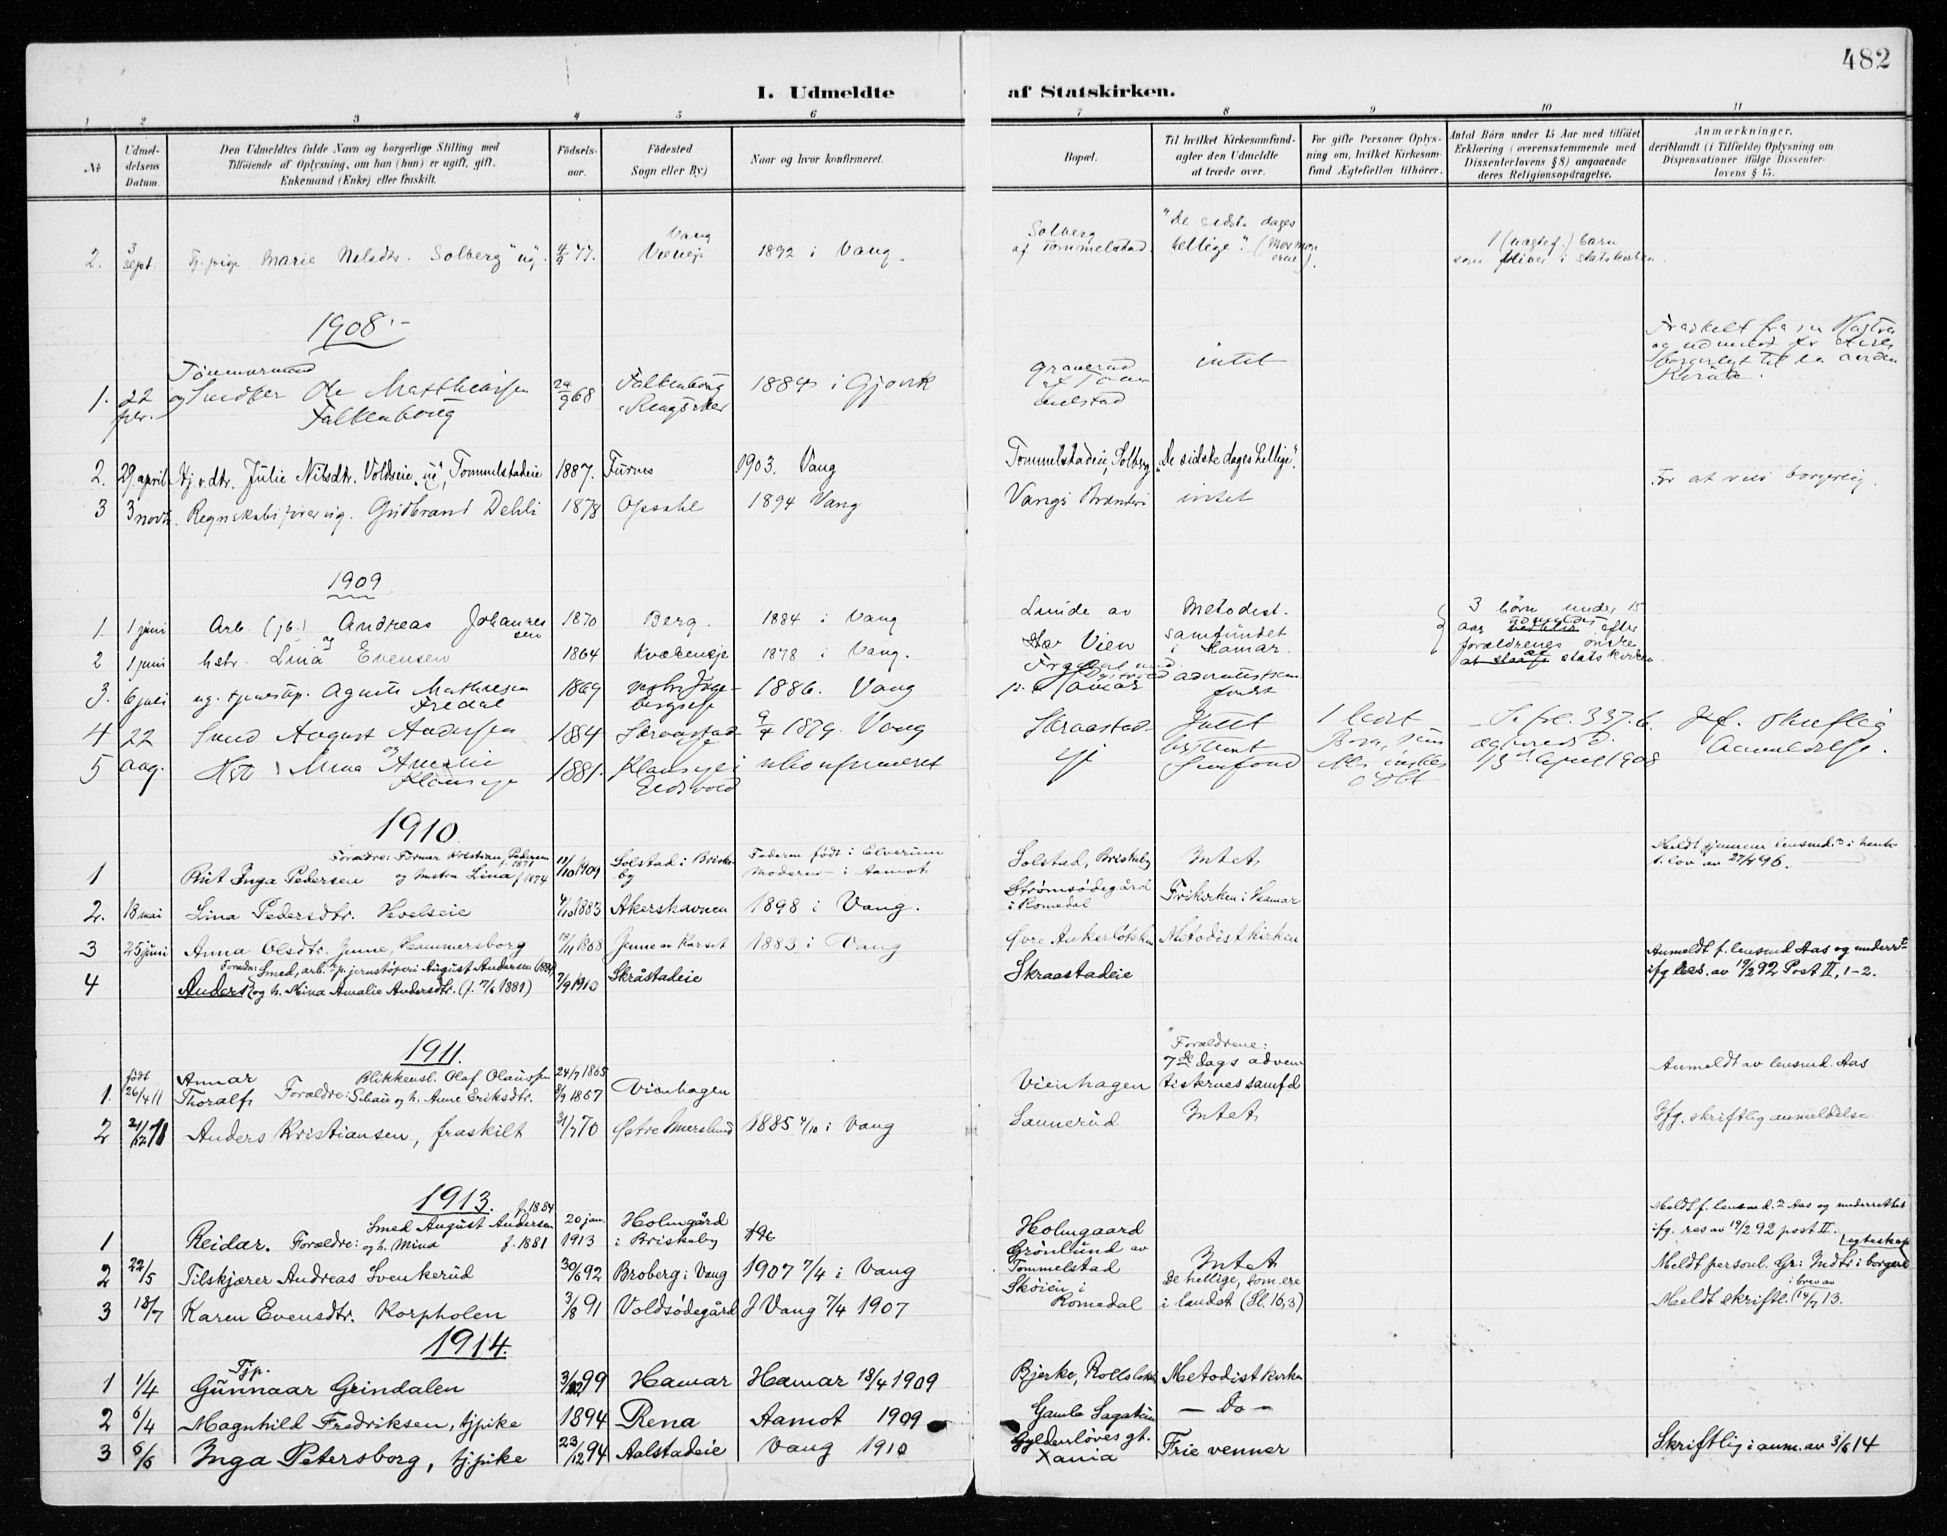 482
I. Udmeldte af Statskirken.
1 2 3 4 5 6 7 8 9 10 11
No
Udmel-
delsens
Datum.
Den Udmeldtes fulde Navn og borgerlige Stilling med
Tilföiende af Oplysning, om han (hun) er ugift, gift.
Enkemand (Enke) eller fraskilt.
Födsels-
aar.
Födested
Sogn eller By)
Naar og hvor konfirmeret.
Bopæl.
Til hvilket Kirkesamfund-
agter den Udmeldte
at træde over.
For gifte Personer Oplys-
ning om, hvilket Kirkesam-
fund Ægtefællen tilhörer.
Antal Börn under 15 Aar med tilföiet
Erklæring (overensstemmende med
Dissenterlovens §8) angaaende
deres Religionsopdragelse.
Anmærkninger,
deriblandt (i Tilfælde) Oplysning om
Dispensationer ifölge Dissenter-
lovens § 15.
2. 3 sept. Tj. pige Marie Nilsdtr. Solberg "ug" 4/9 77. Vang 1892 i Vang.
Solberg af Tommelstad. "De sidste dages hellige". (Mormonerne). 1 (uægtef.) barn
som bliver i statskirken.
1908.-
1. 22 Tönnermand
og Snedker Ole Matthiassen
Falkenborg 24/9 68 Falkenborg Ringsaker 1884 i Gjøvik
intet
2. 29 april Julie Nilsdtr. Voldseie, "ug", Tommelstadeie 1887. Furnes 1903. Vang
Tommelstadeie, Solberg "De sidste dages hellige".
3 3 novb. Regnskabsfører ug. Gudbrand Dehli 1878 Opsahl 1894 Vang
Vangs Brænderi intet For at vies borgerlig.
1909
1. 1 juni Arb. (jb.) Andreas Johannessen 1870 Berg. 1884 i Vang
og
2 1 juni hstr. Lina Evensen 1864 Kvækeneje 1878 i Vang.
Lunde av Vien Metodist-
samfundet
i Hamar.
3 børn under 15
aar efter
forældrenes ønske
statskirken.
3. 6 juli ug. Agnete Mathiesen
Fredal 1869 1886. Vang
Hamar adventistsamfundet
4 22 Smed August Andersen 1884 Skraastad 1879. Vang
5 aug. Hst. Mina Amalie
Klauseje 1881. Klauseje i
Eidsvold ukonfirmeret
Skraastad-
eje Intet
bestemt
Samfund
1 levet
døbt
13de April 1908
skriftlig
Anmeldelse.
1910.
1 Rut Inga Pedersen Forældre: Former Kristian Pedersen f. 1871
og hustru Lina f. 1874 11/10 1909 Solstad i Briske-
by Faderen født i Elverum
Moderen - i Aamot
Solstad, Briskeby Intet,
lov av 27/6 96.
2. 18 mai Lina Pedersdtr. Hvelseie 4/10 1883 Akershavnen 1898 i Vang.
Strømsødegård
i Romedal Frikirken i Hamar
3 25 juni Anna Olsdtr. Jenne, Hammersborg 18/11 1868 Jenne av Karset 1883 i Vang
Øvre Ankerløkken Metodistkirken
4 Forældre: Smed, arb. p. jernstøperi August Andersen (1884)
Anders og h. Mina Amalie Andersdtr. (f. 7/6 1881) 7/9 1910 Skråstadeie
Skraastadeie
Anmeldt f. lensmd Aas og underret
ifg. res. av 19/2 92 Post II, 1-2.
1911.
1. født
26/4 11 Annar
Thoralf, Forældre: Blikkensl. Olaf Olaussen
Schau og h. Anne Eriksdtr. 24/7 1865
8/9 1867 Vienhagen
Vienhagen Forældrene:
7de dags adven
tisternes samfd
Anmeldt av lensmd. Aas
2 21/12 11 Anders Kristiansen, fraskilt 3/7 70 Østre Imerslund 1885 4/10 i Vang
Sannerud Intet, Ifg. skriftlig anmeldelse
1913.
1 Reidar. Forældre: Smed August Andersen f. 1884
og h. Mina f. 1881 20 jan.
1913 Holmgård
i Briskeby
Holmgaard
Meldt f. lensmd. Aas og underrettet
ifg. res av 19/2 92 post II.
2 22/5 Tilskjærer Andreas Svenkerud 30/6 92 Broberg i Vang 1907 7/4 i Vang
Grönlund av
Tommelstad Intet
Meldt personl. Gr: Indtr. i borgerl ægteskap
3 18/7 Karen Evensdtr. Korpholen 3/8 91 Voldsødegård I Vang 7/4 1907
Skøien i
Romedal De hellige, som ere
i landet (Sl. 16,3)
Meldt skriftl. i brev av 14/7 13.
1914.
1 1/4 Tjp.
Gunnaar Grindalen 3/12 99 Hamar Hamar 18/4 1909
Bjerke, Rollsløkk Metodistkirken
2 6/4 Magnhild Fredriksen, tjpike 1894 Rena Aamot 1909
Gamle Sagatun — Do —
3 6/6 Inga Petersborg, tjpike 23/12 94 Aalstadeie Vang 1910
Gyldenløves gt.
Xania Frie venner Skriftlig i anm. av 3/6 14